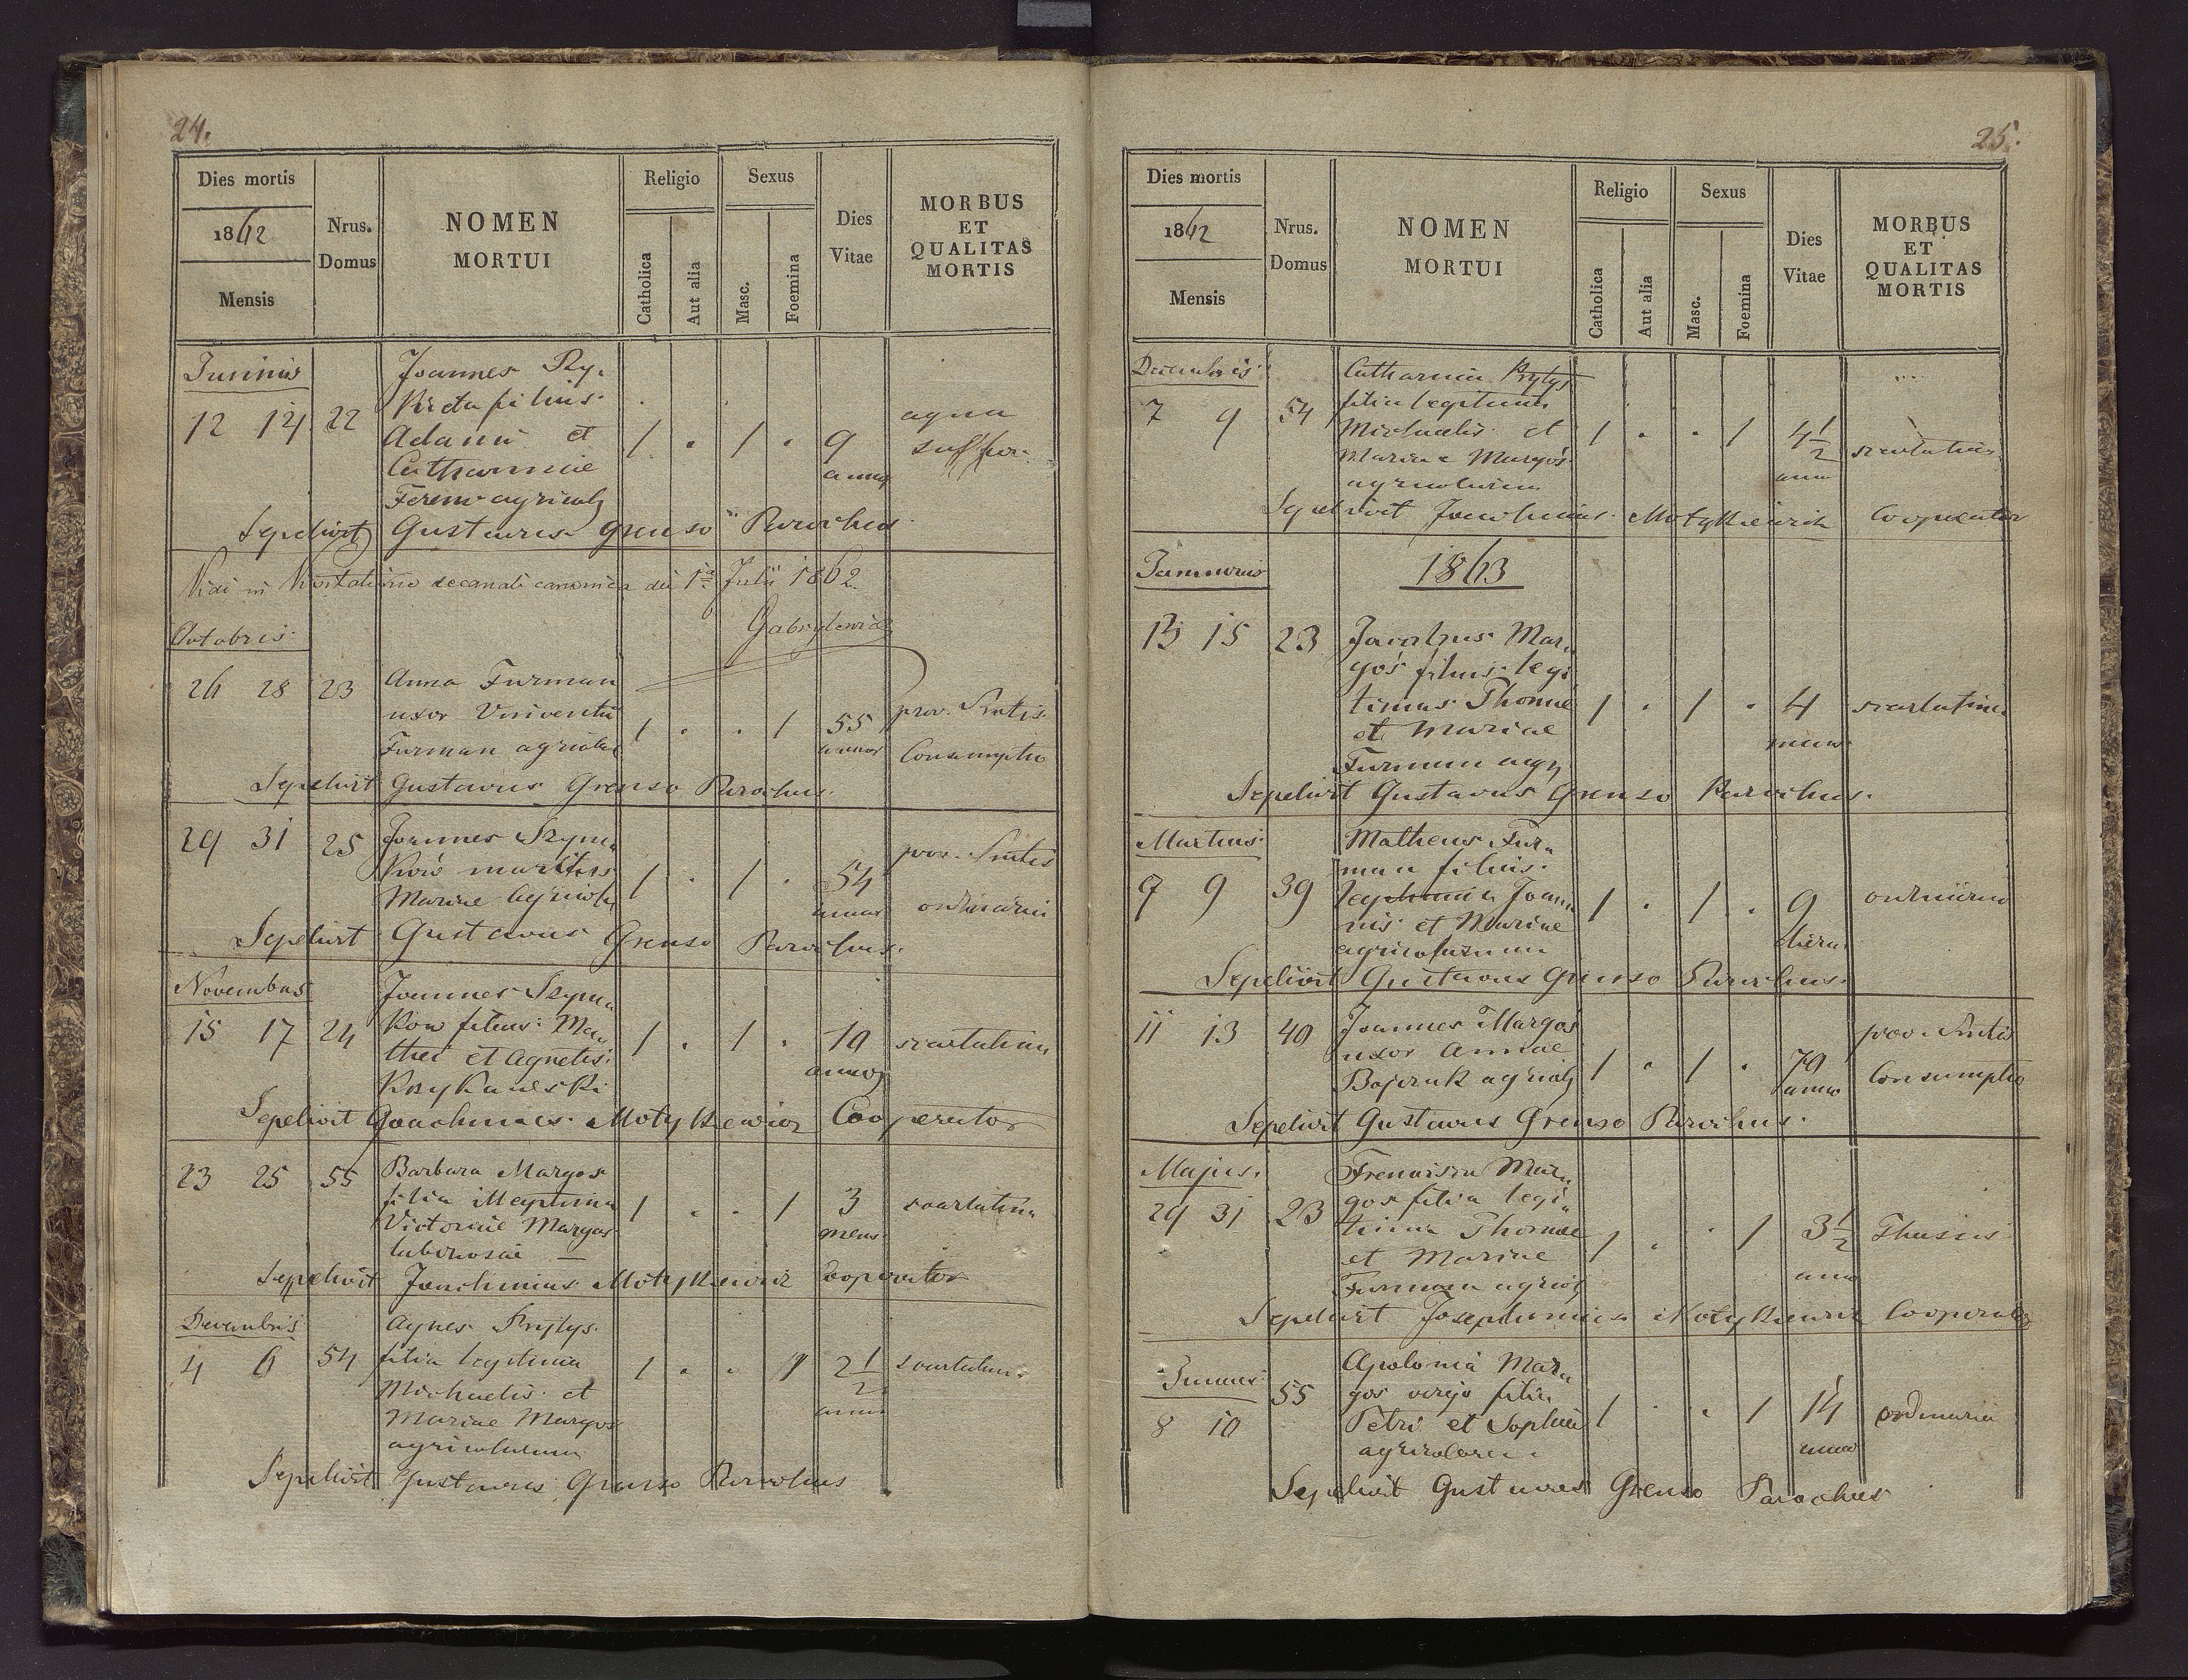 24.
Dies mortis
1862
Mensis
Nrus.
Domus
NOMEN
MORTUI
Religio
Catholica
Aut alia
Sexus
Masc.
Foemina
Dies
Vitae
MORBUS
ET
QUALITAS
MORTIS
Junius
12 14 22
Joannes Ry„
filius
Adami et
Catharinae
agricol
1 „ 1 „ 9
annor
aqua
suffoc.
Sepelivit Gustavus Grenso Parochus
Vidi in Visitatione decanali canonica die 1a Julii 1862
Gabrylewicz
Octobris
26 28 23
Anna Furman
uxor Vincentii
Furman agricolae
1 „ „ 1 55
annor
prov. Smtis
Consumptio
Sepelivit Gustavus Grenso Parochus.
29 31 25
Joannes Szym„
ków maritus
Mariae agricol
1 „ 1 „ 54
annor
prov. Smtis
ordinaria
Sepelivit Gustavus Grenso Parochus.
Novembris
15 17 24
Joannes Szym„
kow filius Ma„
thei et Agnetis
1 „ 1 „ 10
annor
scarlatina
Sepelivit Joachimus Motykiewicz Cooperator
23 25 55
Barbara Margos
filia illegitima
Victoriae Margos
laboriosae —
1 „ „ 1 3
mens.
scarlatina
Sepelivit Joachimus Motykiewicz Cooperator
Decembris
4 6 54
Agnes Prytys
filia legitima
Michaelis et
Mariae Margos
agricolarum
1 „ „ 1 2 1/2
annor
scarlatina
Sepelivit Gustavus Grenso Parochus
25.
Dies mortis
1862
Mensis
Nrus.
Domus
NOMEN
MORTUI
Religio
Catholica
Aut alia
Sexus
Masc.
Foemina
Dies
Vitae
MORBUS
ET
QUALITAS
MORTIS
Decembris
7 9 54
Catharina Prytys
filia legitima
Michaelis et
Mariae Margos
agricolarum
1 „ „ 1 4 1/2
anno
scarlatina
Sepelivit Joachimus Motykiewicz Cooperator
Januarius
1863
13 15 23
Jacobus Mar„
gos filius legi
timus Thomae
et Mariae
Furman agr
1 „ 1 „ 4
scarlatina
Sepelivit Gustavus Grenso Parochus.
Martius
7 9 39
Matheus Fur„
man filius
Joan
nis et Mariae
agricolarum
1 „ 1 „ 9
dierum
ordinaria
Sepelivit Gustavus Grenso Parochus.
11 13 40
Joannes Margos
uxor Annae
Bojczuk agricol
1 „ 1 „ 70
anno
prov. Smtis
Consumptio
Sepelivit Gustavus Grenso Parochus.
Majus.
29 31 23
Francisca Mar„
gos filia legi„
tima Thomae
et Mariae
Furman agricol
1 „ „ 1 3 1/2
anno
Thussis
Sepelivit Motykiewicz Cooperator
Junius
8 10 55
Apolonia Mar„
gos virgo filia
Petri et Sophiae
agricolarum
1 „ „ 1 14
anno
ordinaria
Sepelivit Gustavus Grenso Parochus